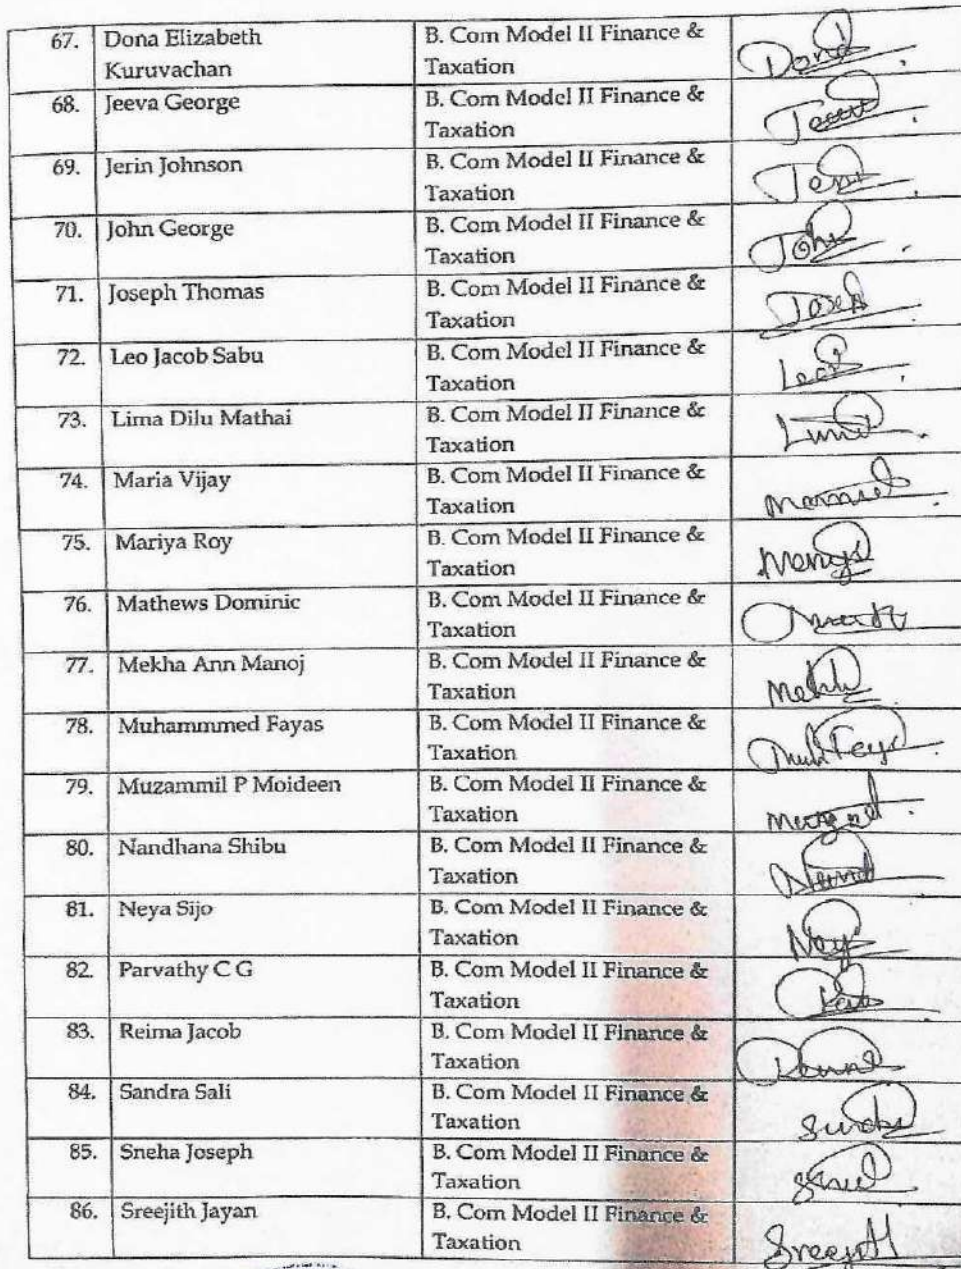 67. Dona Elizabeth B. Com Model II Finance & Dona
Kuruvachan Taxation
68. Jeeva George B. Com Model II Finance &
Taxation
69. Jerin Johnson B. Com Model II Finance &
Taxation
70. John George B. Com Model II Finance & John
Taxation
71. Joseph Thomas B. Com Model II Finance & Joseph
Taxation
72. Leo Jacob Sabu B. Com Model II Finance &
Taxation
73. Lima Dilu Mathai B. Com Model II Finance &
Taxation
74. Maria Vijay B. Com Model II Finance &
Taxation
75. Mariya Roy B. Com Model II Finance &
Taxation
76. Mathews Dominic B. Com Model II Finance &
Taxation
77. Mekha Ann Manoj B. Com Model II Finance &
Taxation
78. Muhammmed Fayas B. Com Model II Finance &
Taxation
79. Muzammil P Moideen B. Com Model II Finance &
Taxation
80. Nandhana Shibu B. Com Model II Finance &
Taxation
81. Neya Sijo B. Com Model II Finance &
Taxation
82. Parvathy C G B. Com Model II Finance &
Taxation
83. Reima Jacob B. Com Model II Finance &
Taxation
84. Sandra Sali B. Com Model II Finance &
Taxation
85. Sneha Joseph B. Com Model II Finance &
Taxation
86. Sreejith Jayan B. Com Model II Finance &
Taxation